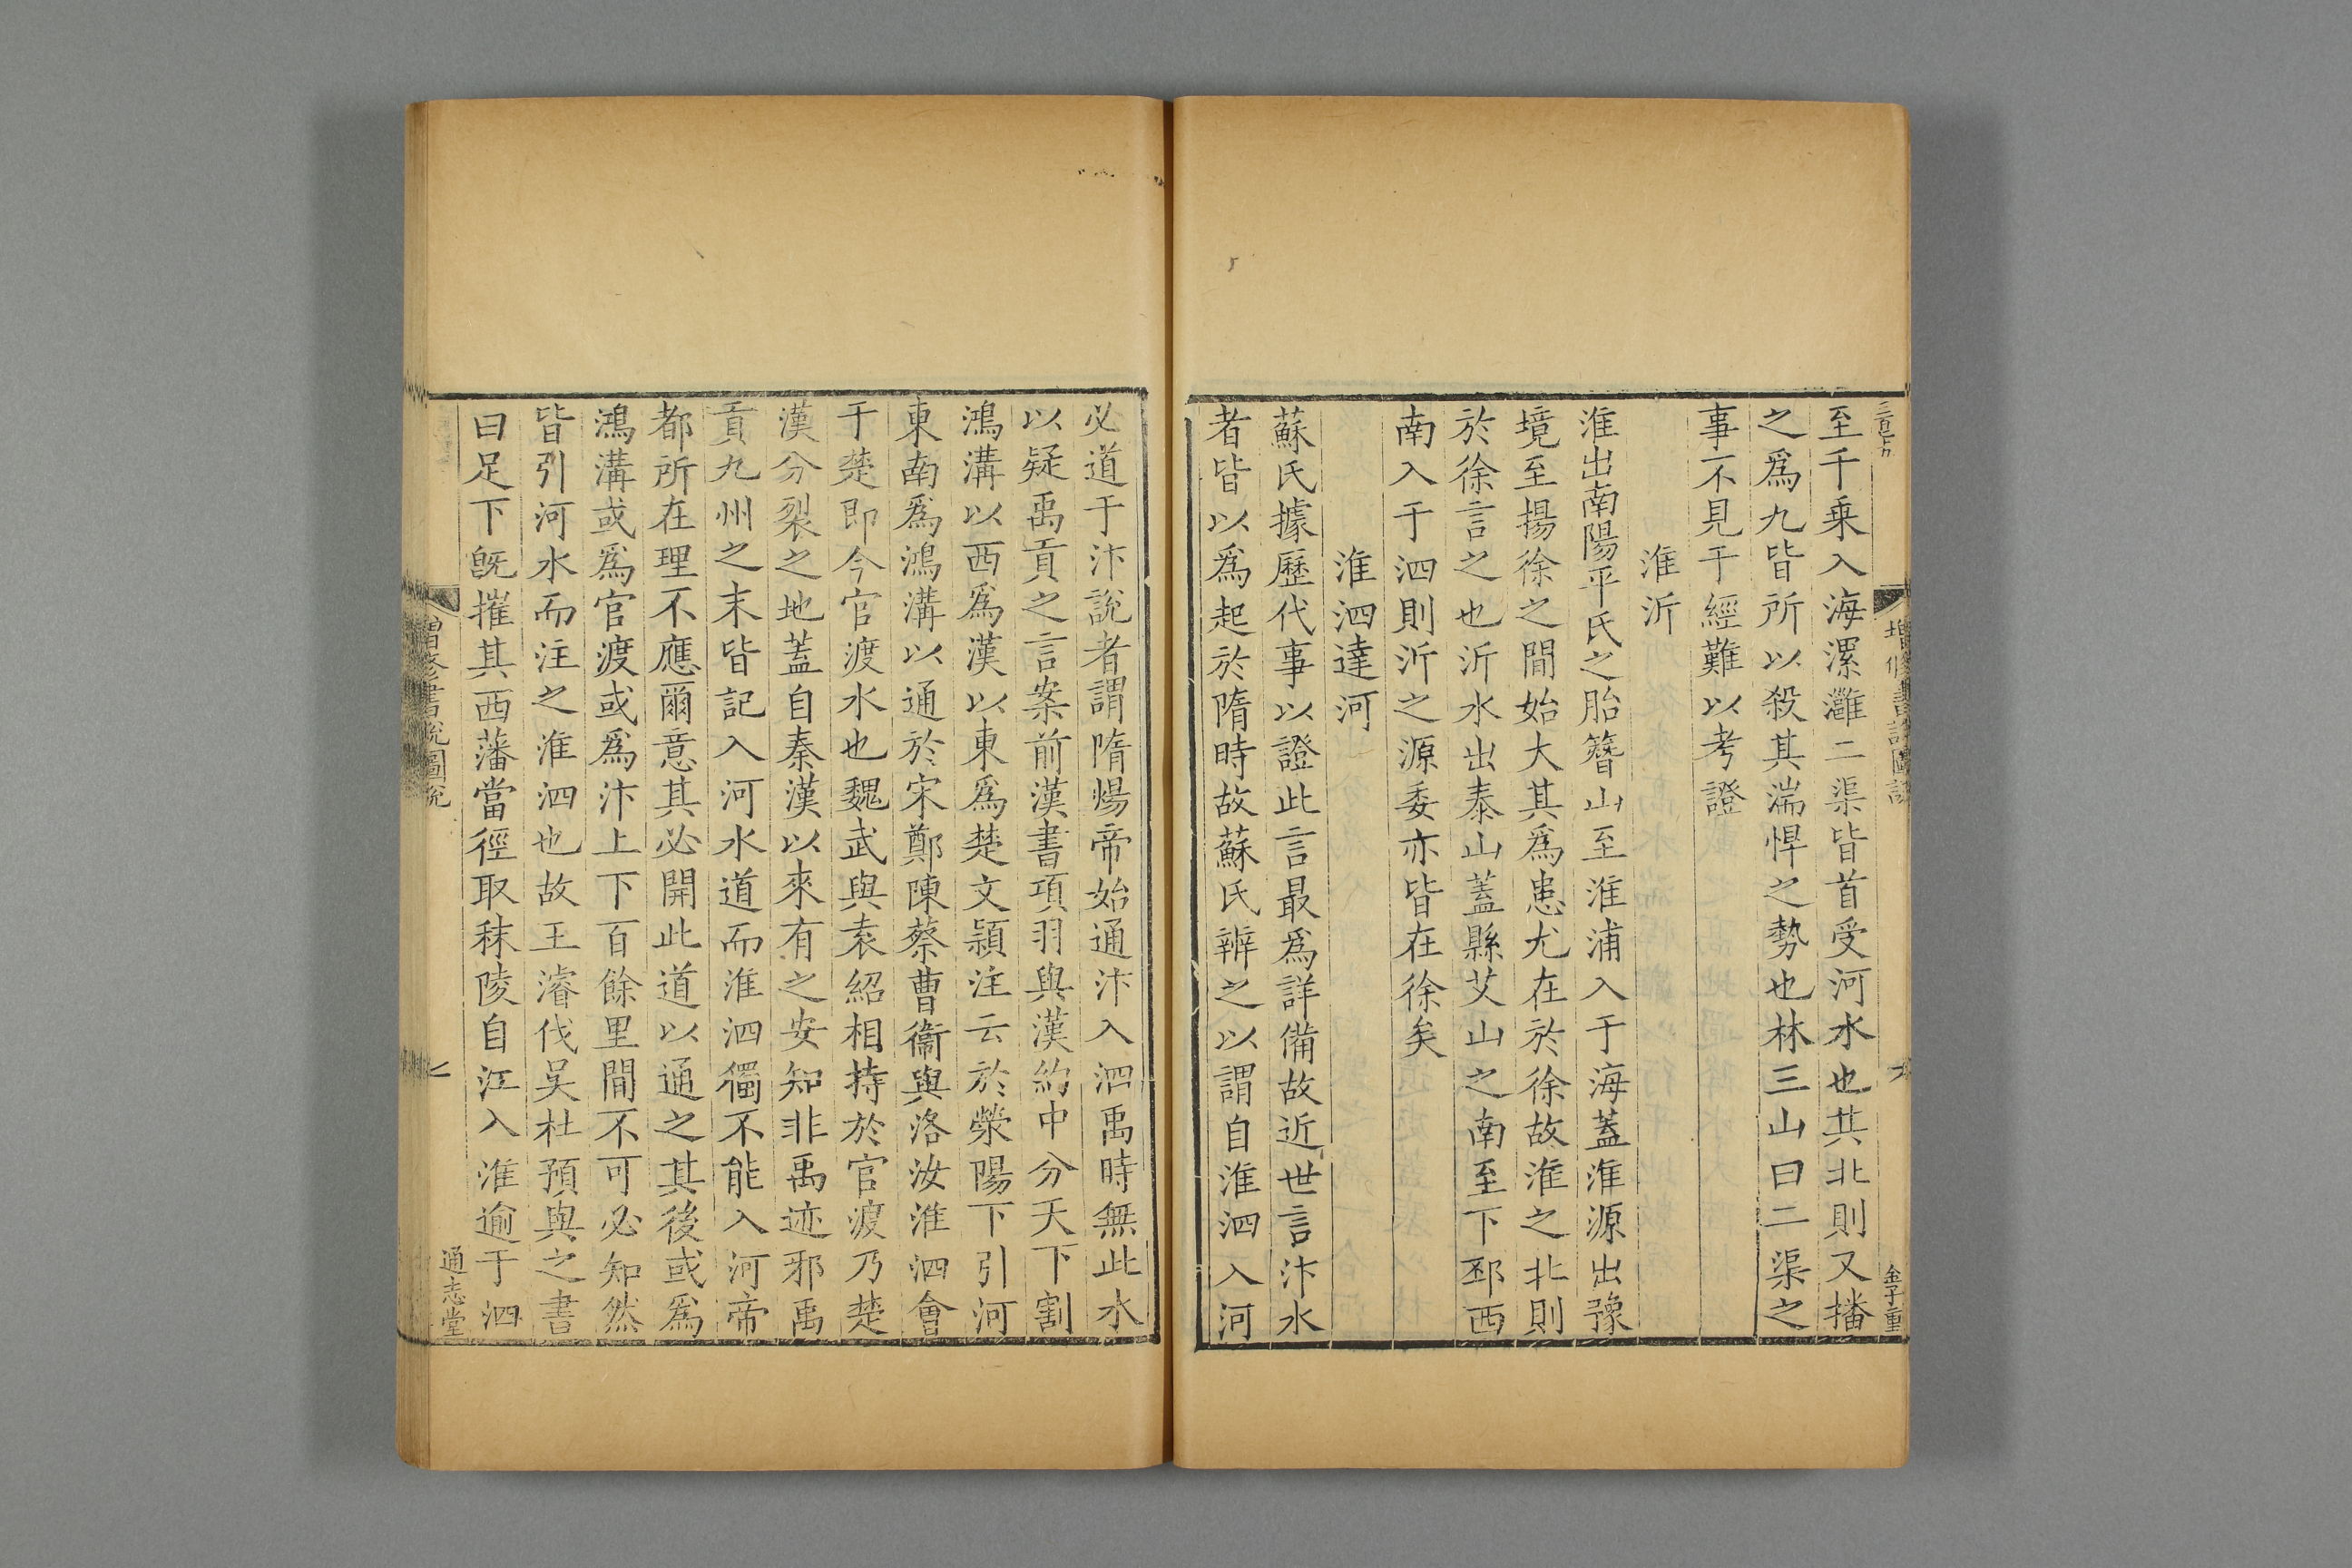 至千乘入海漯灉二渠皆首受河水也其北則又播
之爲九皆所以殺其湍悍之勢也林三山曰二渠之
事不見于經難以考證
淮沂
淮出南陽平氏之胎簪山至淮浦入于海蓋淮源出豫
境至揚徐之間始大其爲患尤在於徐故淮之北則
於徐言之也沂水出泰山蓋縣艾山之南至下邳西
南入于泗則沂之源委亦皆在徐矣
淮泗達河
蘇氏據歷代事以證此言最爲詳備故近世言汴水
者皆以爲起於隋時故蘇氏辨之以謂自淮泗入河
必道于汴說者謂隋煬帝始通汴入泗禹時無此水
以疑禹貢之言案前漢書項羽與漢約中分天下割
鴻溝以西爲漢以東爲楚文穎注云於滎陽下引河
東南爲鴻溝以通於宋鄭陳蔡曹衞與洛汝淮泗會
于楚即今官渡水也魏武與袁紹相持於官渡乃楚
漢分裂之地蓋自秦漢以來有之安知非禹迹邪禹
貢九州之末皆記入河水道而淮泗獨不能入河帝
都所在理不應爾意其必開此道以通之其後或爲
鴻溝或爲官渡或爲汴上下百餘里間不可必知然
皆引河水而注之淮泗也故王濬伐吳杜預與之書
曰足下旣摧其西藩當徑取秣陵自江入淮逾于泗
增修書說圖說
通志堂
增修書說圖說
金子重